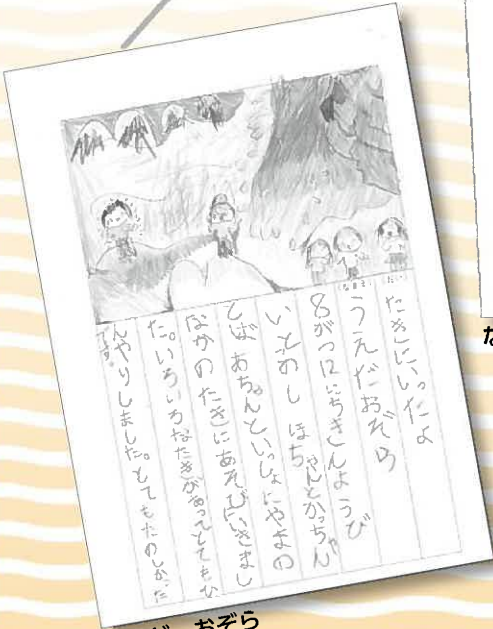 (だい)
たきにいったよ
(なまえ)
うえだおぞら
8がつ12にちきんようび
いとのし ほちゃんとかっちゃん
とば あちゃんといっしょにやまの
なかのたきにあそびにいきまし
た。いろいろなたきがあってとてもひ
んやりしました。とてもたのしかった
です。
おぞら
な